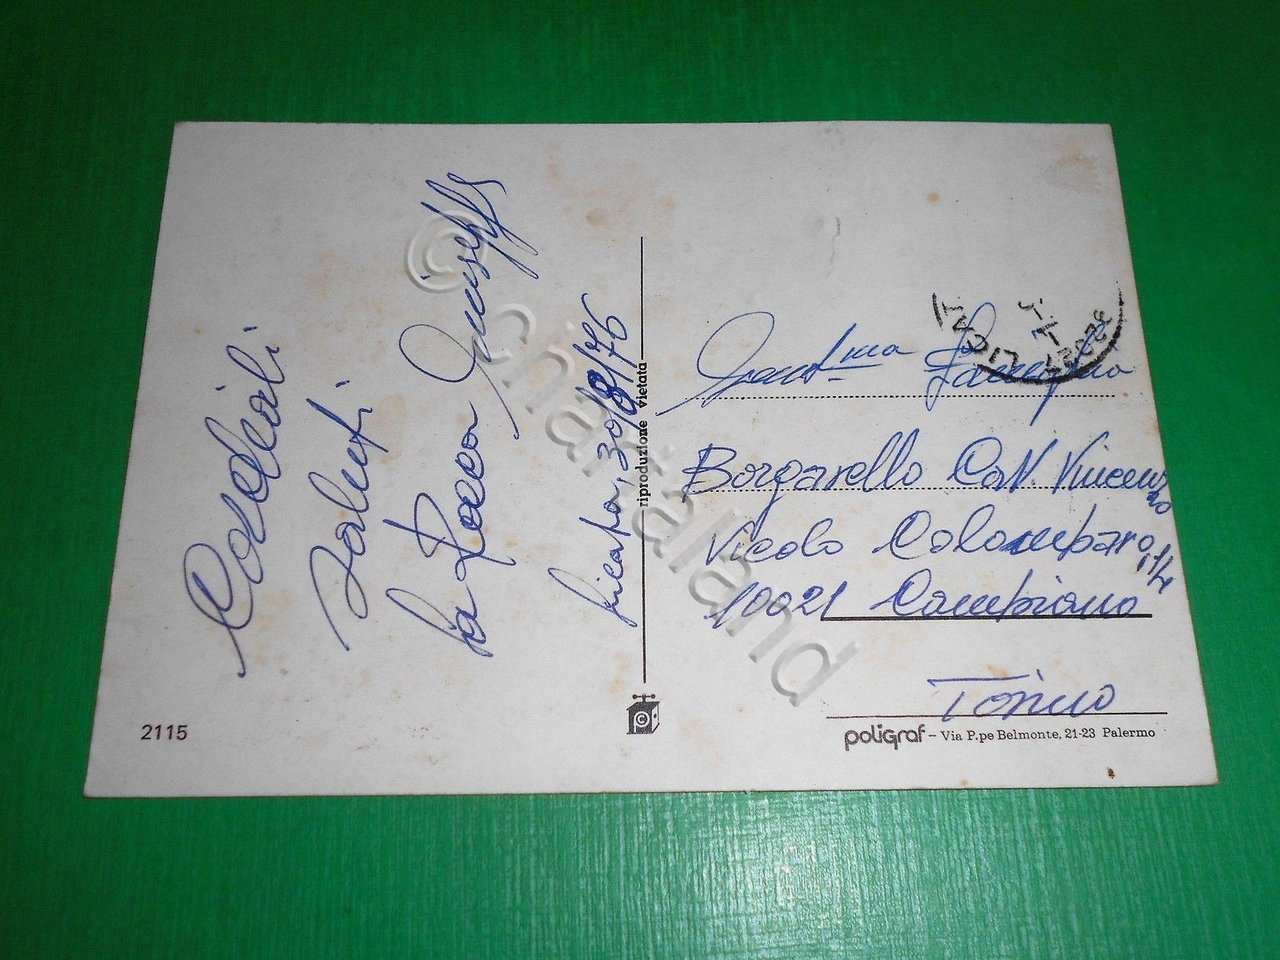 Cordiali
saluti
La Rocca Giuseppe
Licata, 30/8/76
riproduzione vietata
Gent.ma Famiglia
Borgarello Cav. Vincenzo
Vicolo Colombaro, 1/4
10021 Cambiano
Torino
LICAT
92027
2115
©
poligraf - Via P.pe Belmonte, 21-23 Palermo
© chartaland